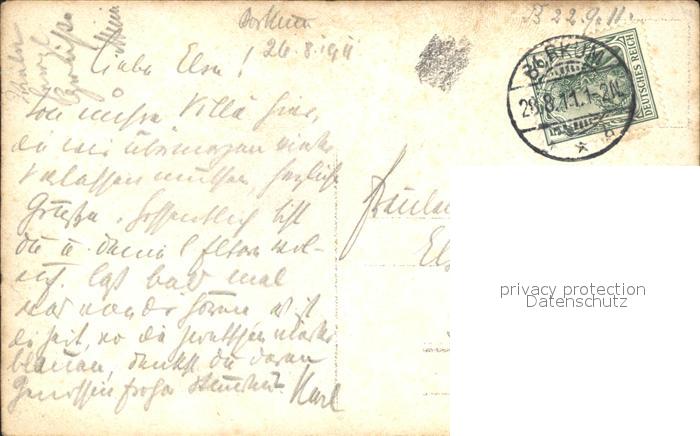 Borkum
26.8.1911
B 22.9.11.
BORKUM
28.8.11.1-2N.
a
DEUTSCHES REICH
Liebe Else!
Von unsrer Villa hier,
die wir übermorgen wieder
verlassen müssen, herzliche
Grüße. Hoffentlich bist
du u. deine Eltern wol-
auf. Laß bald mal
was von dir hören. Es ist
die Zeit, wo die
blauen, denkst du daran
froher Stunden
Karl
Fräulein
privacy protection
Datenschutz